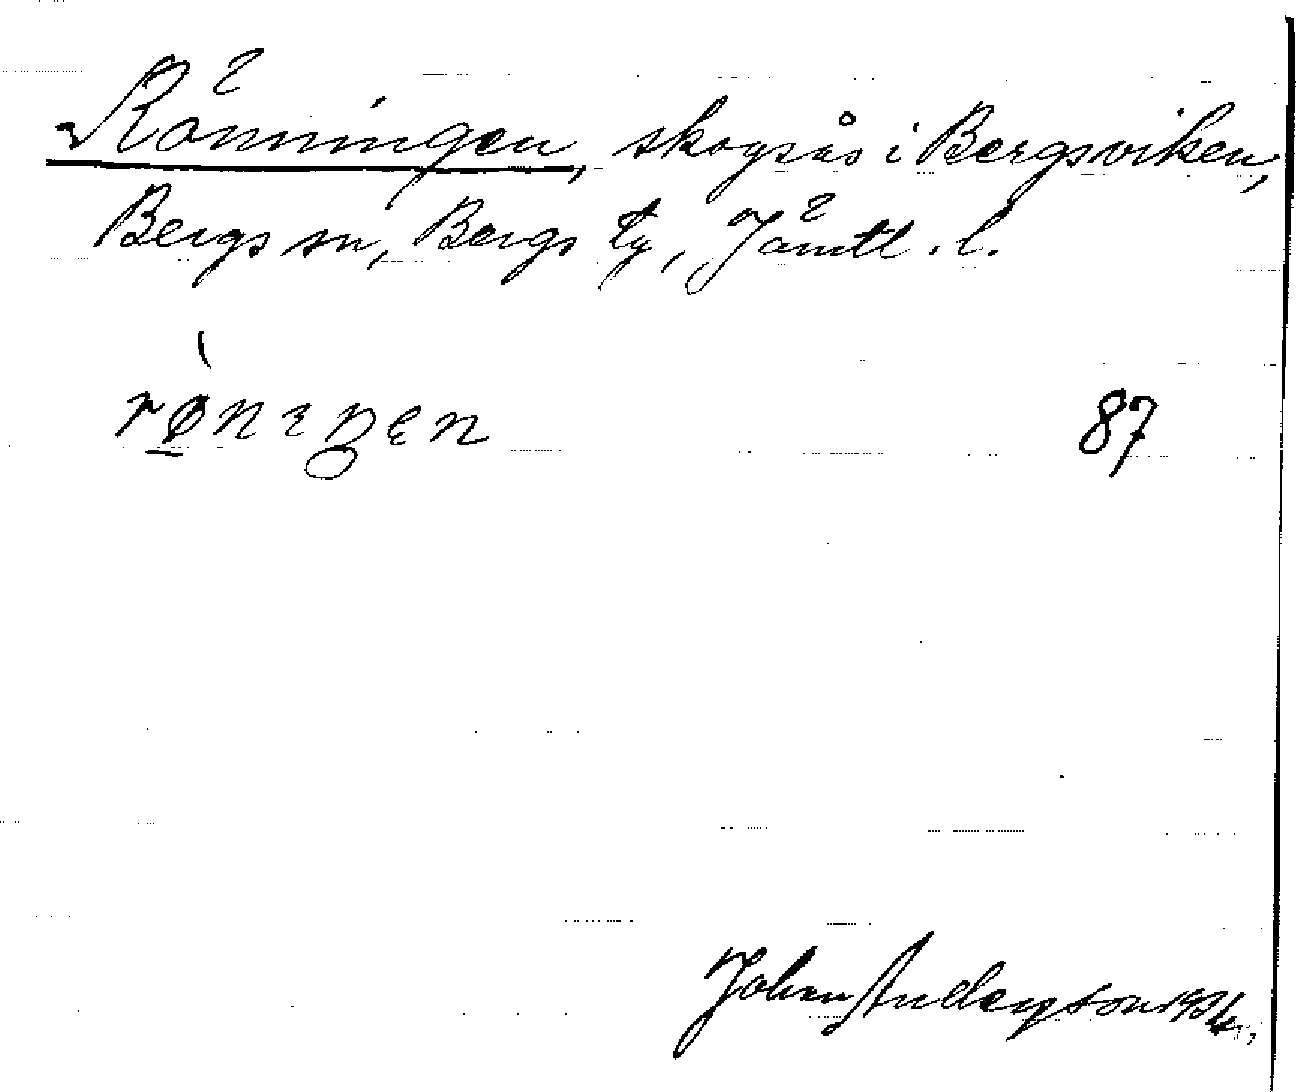 Rönningen, skogsås i Bergsviken,
Bergs sn, Bergs tg, Jämtl. l.
87
Johan Anderson 1934.